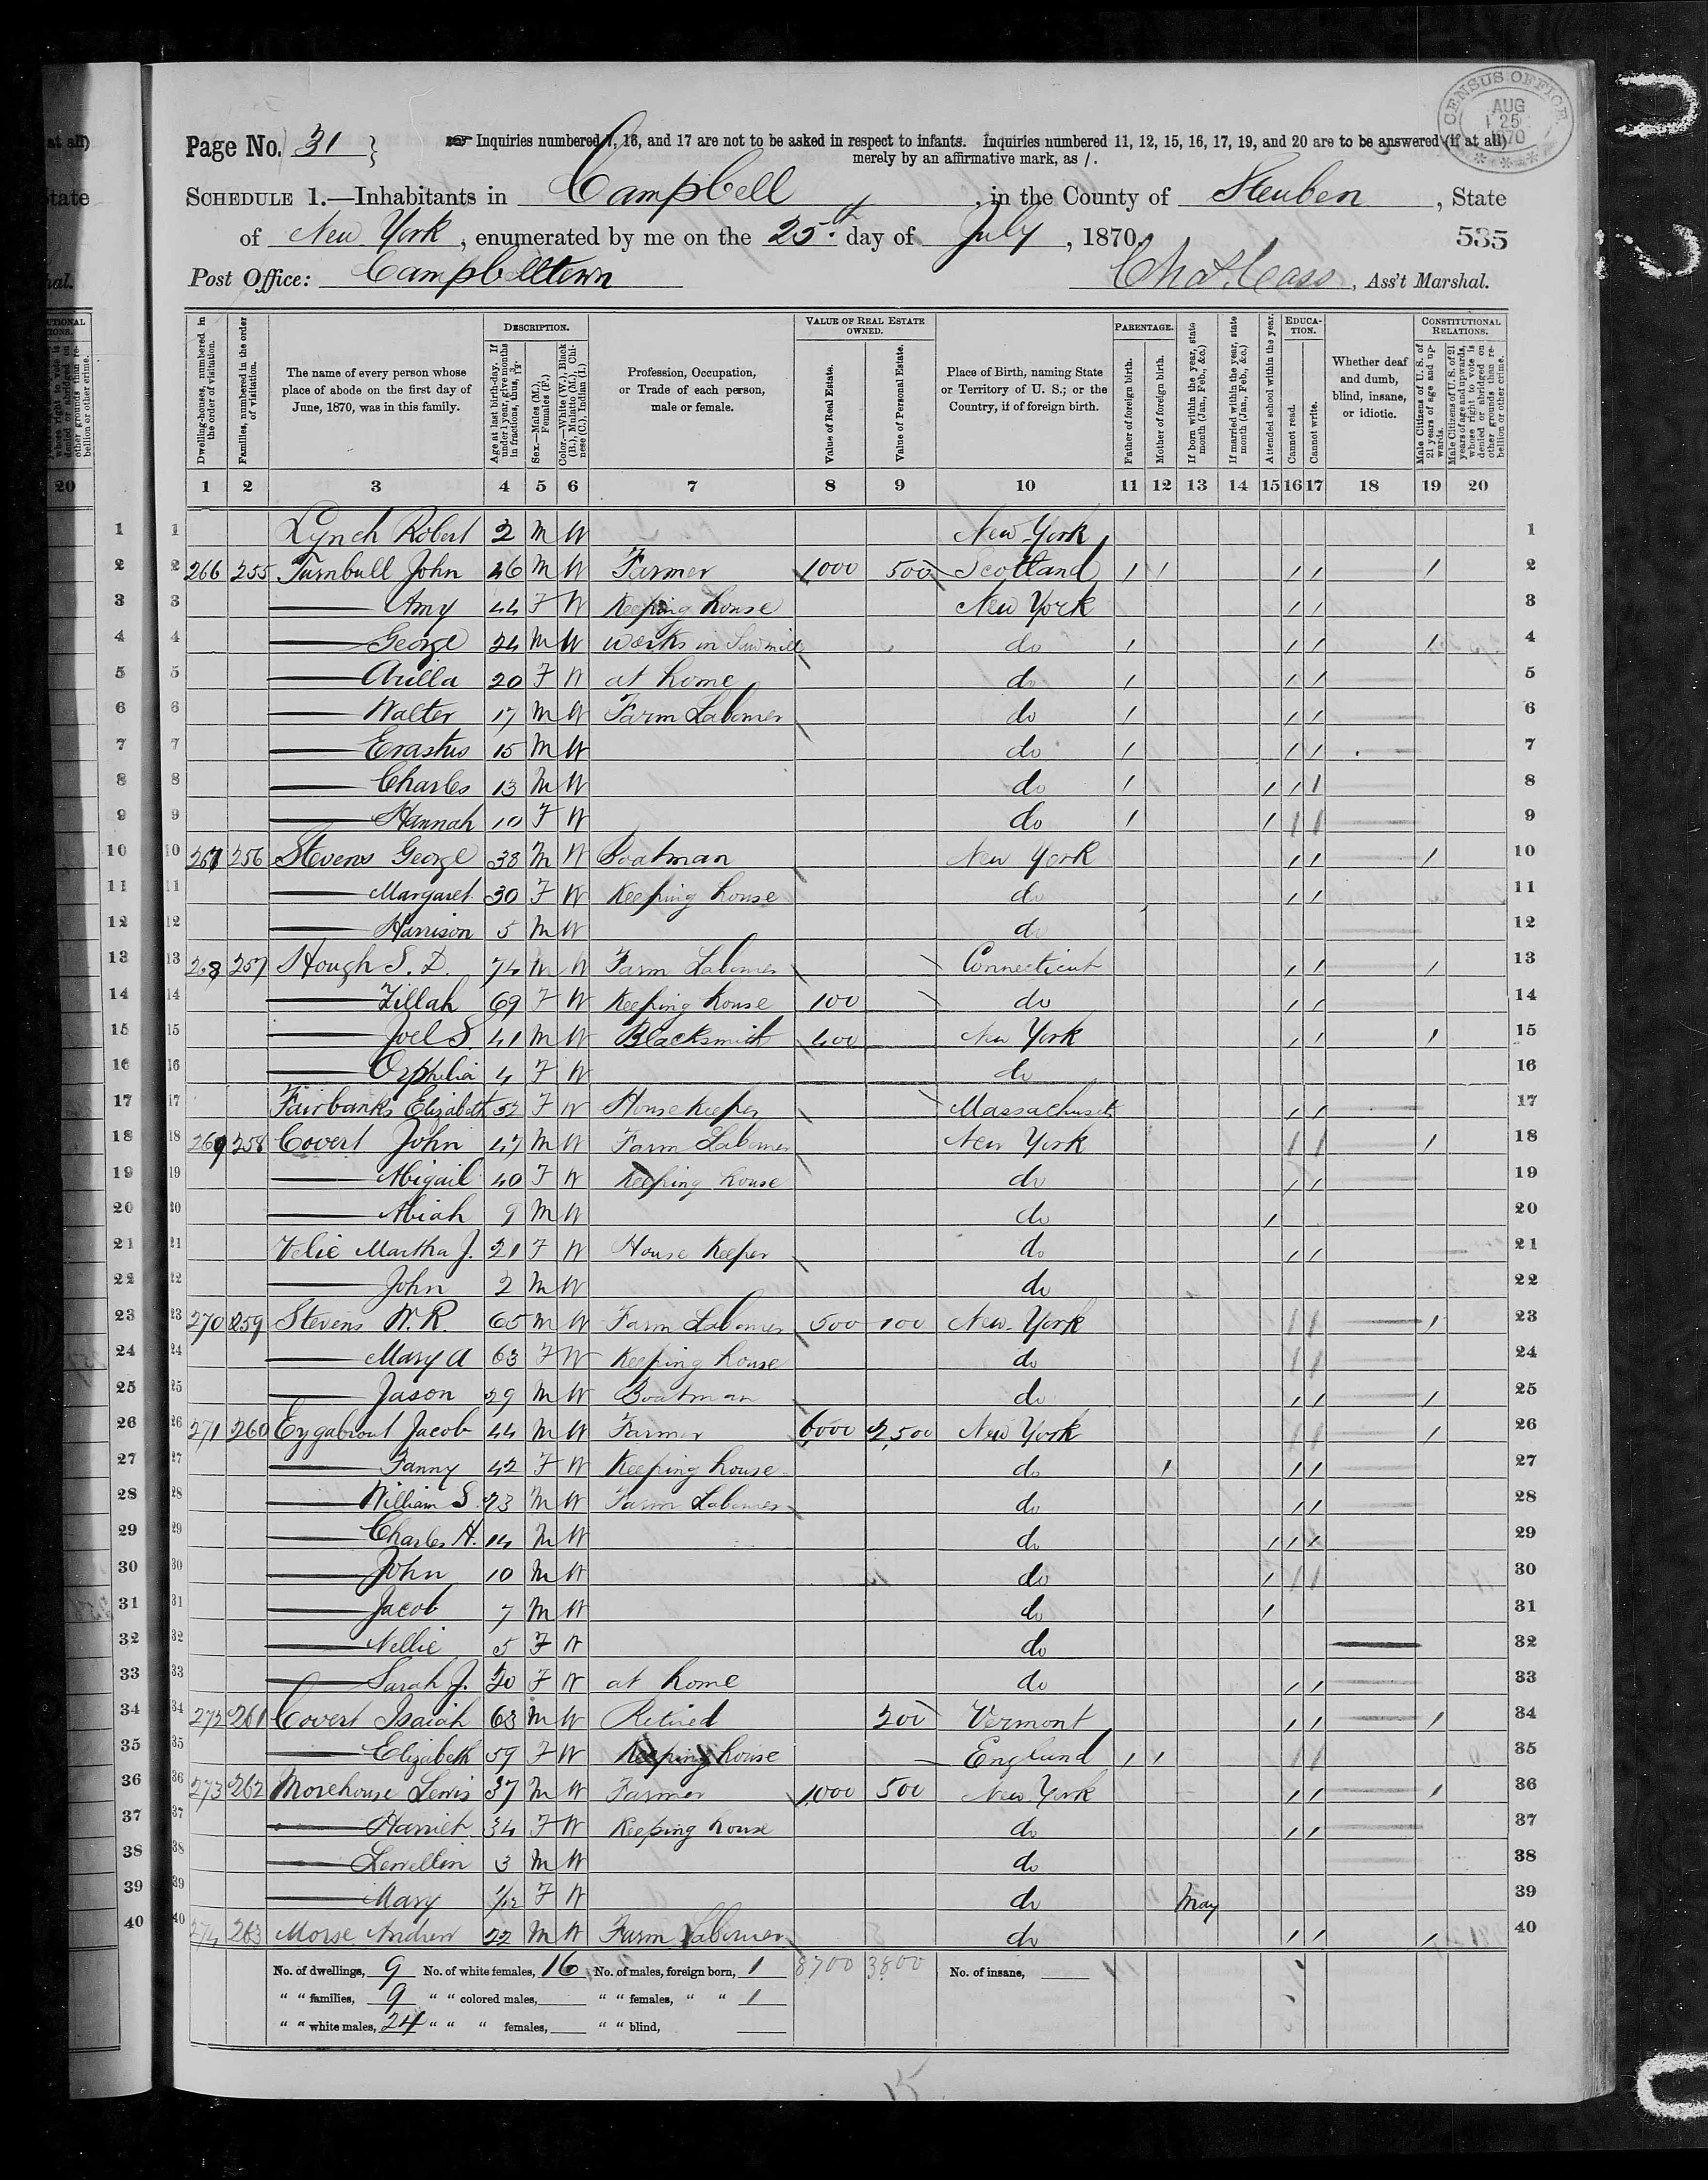 CENSUS OFFICE. AUG 25 1870
Page No. 31 } Inquiries numbered 7, 16, and 17 are not to be asked in respect to infants. Inquiries numbered 11, 12, 15, 16, 17, 19, and 20 are to be answered (if at all)
merely by an affirmative mark, as /.
SCHEDULE 1.—Inhabitants in Campbell, in the County of Steuben, State
of New York, enumerated by me on the 25th day of July, 1870.
535
Post Office: Campbelltown Chas. Cass, Ass't Marshal.
Dwelling-houses, numbered in the order of visitation.
Families, numbered in the order of visitation.
The name of every person whose place of abode on the first day of June, 1870, was in this family.
DESCRIPTION.
Age at last birth-day. If under 1 year, give months in fractions, thus, 3/12.
Sex.—Males (M.), Females (F.)
Color.—White (W.), Black (B.), Mulatto (M.), Chinese (C.), Indian (I.)
Profession, Occupation, or Trade of each person, male or female.
VALUE OF REAL ESTATE OWNED.
Value of Real Estate.
Value of Personal Estate.
Place of Birth, naming State or Territory of U. S.; or the Country, if of foreign birth.
PARENTAGE.
Father of foreign birth.
Mother of foreign birth.
If born within the year, state month (Jan., Feb., &c.)
If married within the year, state month (Jan., Feb., &c.)
EDUCATION.
Attended school within the year.
Cannot read.
Cannot write.
Whether deaf and dumb, blind, insane, or idiotic.
CONSTITUTIONAL RELATIONS.
Male Citizens of U. S. of 21 years of age and upwards.
Male Citizens of U. S. of 21 years of age and upwards, whose right to vote is denied or abridged on other grounds than rebellion or other crime.
1 2 3 4 5 6 7 8 9 10 11 12 13 14 15 16 17 18 19 20
1 Lynch Robert 2 M W New York 1
2 266 255 Turnbull John 46 M W Farmer 1000 500 Scotland / / / / / 2
3 —— Amy 44 F W Keeping house New York / / 3
4 —— George 24 M W works in Sawmill do / / / / 4
5 —— Arilla 20 F W at home do / / / 5
6 —— Walter 17 M W Farm Laborer do / / / 6
7 —— Erastus 15 M W do / / / 7
8 —— Charles 13 M W do / / / / 8
9 —— Hannah 10 F W do / / / / 9
10 267 256 Stevens George 38 M W Boatman New York / / / 10
11 —— Margaret 30 F W Keeping house do / / 11
12 —— Harrison 5 M W do 12
13 268 257 Hough S. D. 74 M W Farm Laborer Connecticut / / / 13
14 —— Zillah 69 F W Keeping house 100 do / / 14
15 —— Joel S. 41 M W Blacksmith 400 New York / / / 15
16 —— Orphelia 4 F W do 16
17 Fairbanks Elizabeth 52 F W Housekeeper Massachusets / / 17
18 269 258 Covert John 47 M W Farm Laborer New York / / / 18
19 —— Abigail 40 F W Keeping house do / / 19
20 —— Abiah 9 M W do / 20
21 Velie Martha J. 21 F W House Keeper do / / 21
22 —— John 2 M W do 22
23 270 259 Stevens W. R. 65 M W Farm Laborer 500 100 New York / / / 23
24 —— Mary A 63 F W Keeping house do / / 24
25 —— Jason 29 M W Boatman do / / / 25
26 271 260 Eygabrout Jacob 44 M W Farmer 6000 2,500 New York / / / 26
27 —— Fanny 42 F W Keeping house do / / / 27
28 —— William S. 23 M W Farm Laborer do / / 28
29 —— Charles H. 14 M W do / / / 29
30 —— John 10 M W do / / / 30
31 —— Jacob 7 M W do / 31
32 —— Nellie 5 F W do 32
33 —— Sarah J. 20 F W at home do / / 33
34 272 261 Covert Isaiah 63 M W Retired 200 Vermont / / / 34
35 —— Elizabeth 59 F W Keeping house England / / / / 35
36 273 262 Morehouse Lewis 37 M W Farmer 1,000 500 New York / / / 36
37 —— Harriet 34 F W Keeping house do / / 37
38 —— Lewellin 3 M W do 38
39 —— Mary 1/12 F W do May 39
40 274 263 Morse Andrew 22 M W Farm Laborer do / / / 40
No. of dwellings, 9 No. of white females, 16 No. of males, foreign born, 1 8700 3800 No. of insane,
" " families, 9 " " colored males, " " females, " " 1
" " white males, 24 " " " females, " " blind,
15